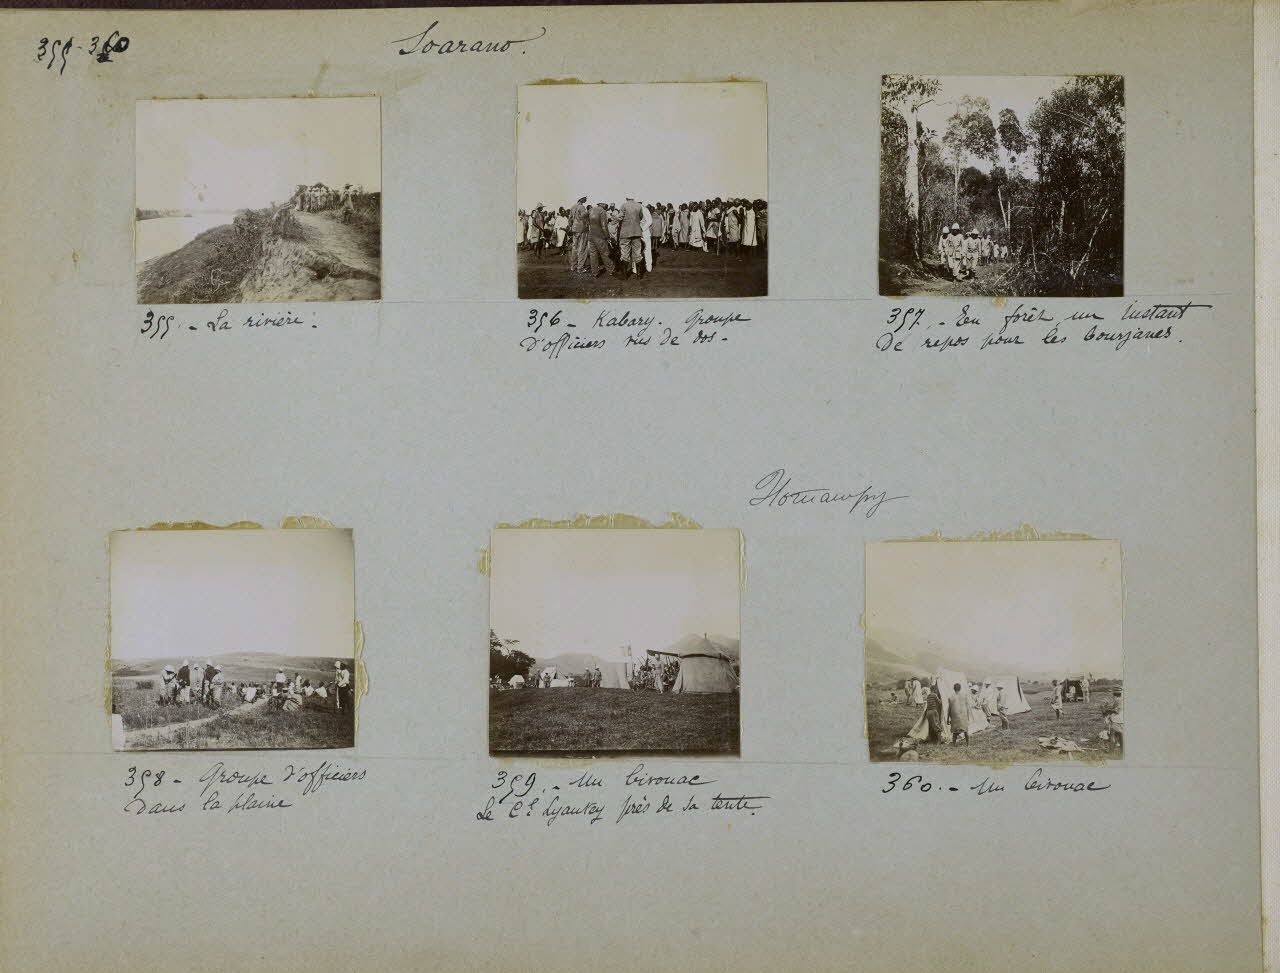 355-360
Soarano.
355. - La rivière.
356 - Kabary. Groupe
d'officiers vus de dos -
357. - En forêt, un instant
de repos pour les bourjanes.
358 - Groupe d'officiers
dans la plaine
359. - Un bivouac
Le C<sup>el</sup> Lyautey près de sa tente.
360. - Un bivouac